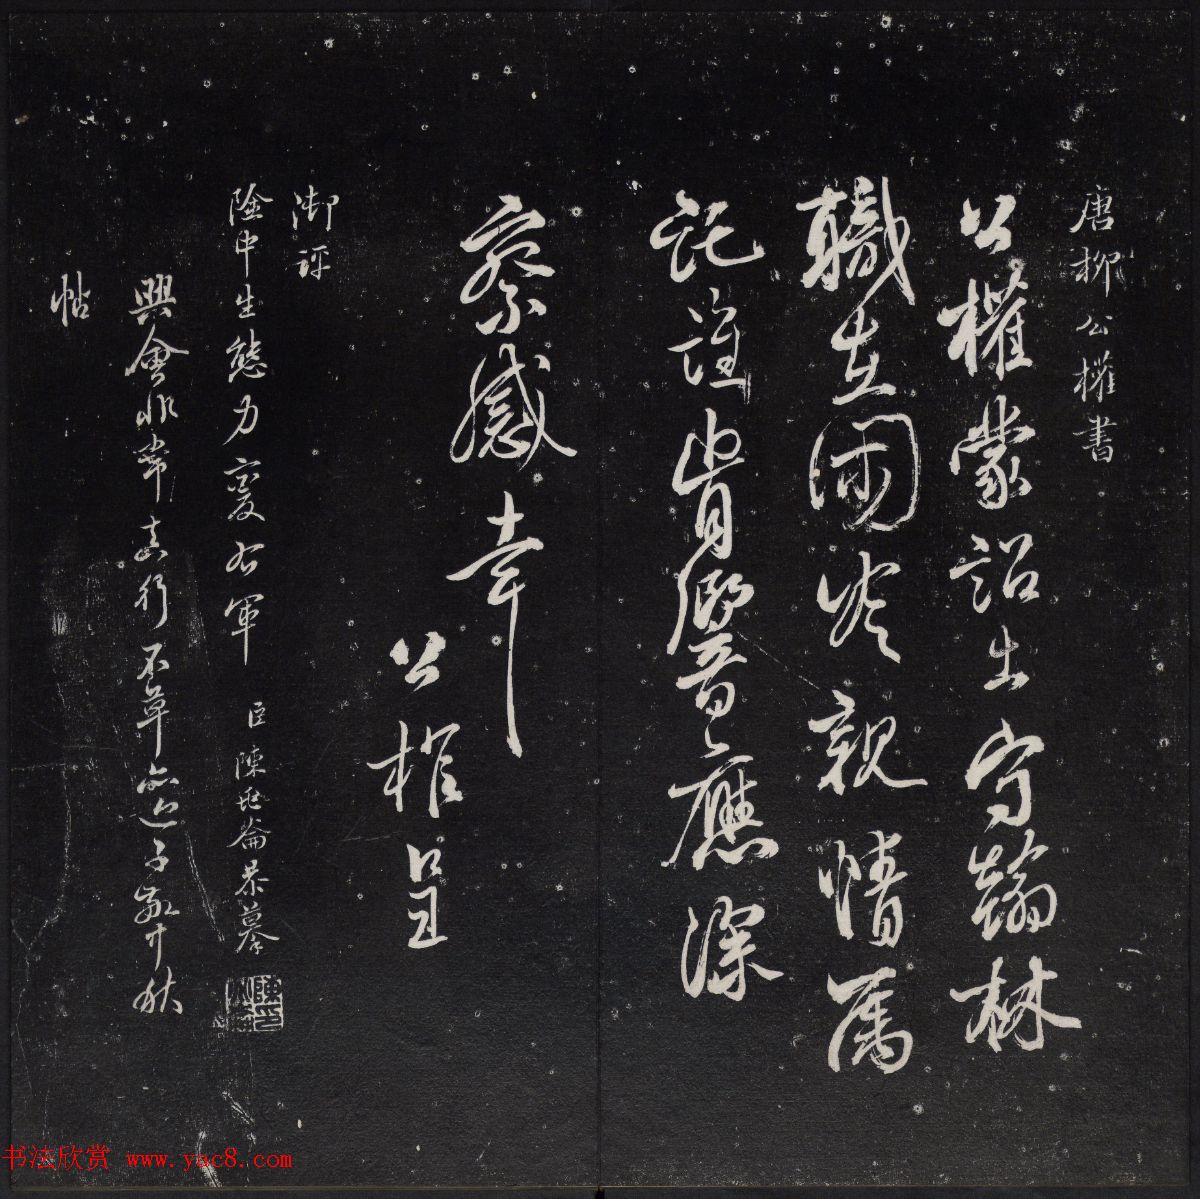 唐柳公權書
公權蒙詔出守翰林
職在閟密親情囑
託誰肯響應深
察感幸
公權呈
御評
險中生態力變右軍
臣陳孝論恭摹
興會非常真行不草並迎子敬中秋
帖
书法欣赏 www.yac8.com